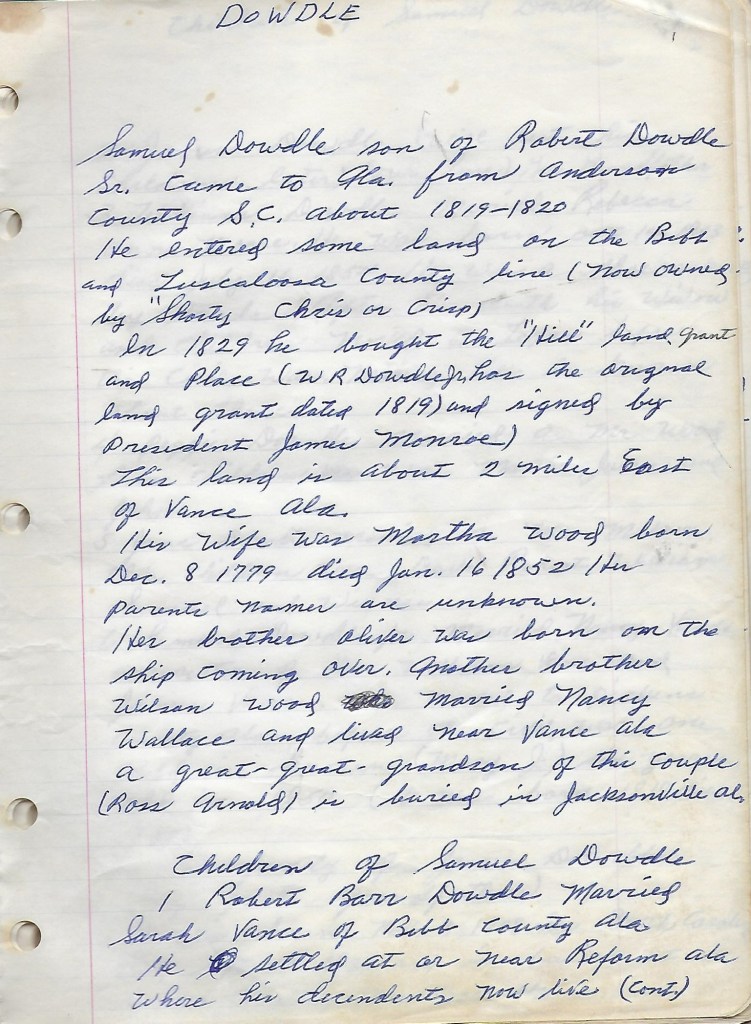 DOWDLE
1
Samuel Dowdle son of Robert Dowdle
Sr. Came to Ala. from Anderson
County S.C. about 1819-1820
He entered some land on the Bibb
and Tuscaloosa County line (now owned
by "Shorty Chris or Crisp)
In 1829 he bought the "Hill" land grant
and Place (W R Dowdle Jr, has the original
land grant dated 1819) and signed by
President James Monroe)
This land is about 2 miles East
of Vance Ala.
His Wife was Martha Wood born
Dec. 8 1779 died Jan. 16 1852 Her
parents names are unknown.
Her brother Oliver was born on the
ship coming over. Another brother
Wilson Wood Married Nancy
Wallace and lived near Vance Ala
a great-great-grandson of this couple
(Ross Arnold) is buried in Jacksonville al.
Children of Samuel Dowdle
1 Robert Barr Dowdle Married
Sarah Vance of Bibb County Ala
He settled at or near Reform ala
where his decendents now live (cont.)